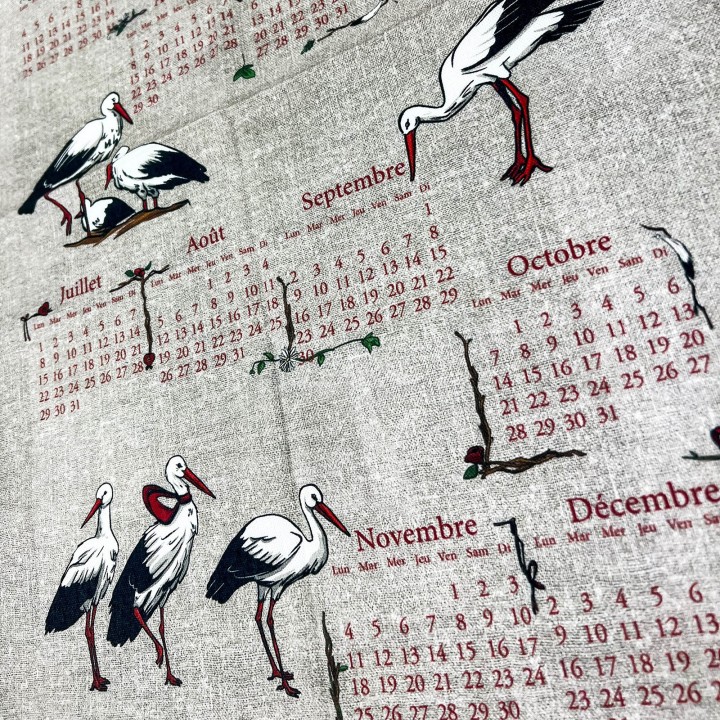 1 2 3 4 5 6 7
8 9 10 11 12 13 14
15 16 17 18 19 20 21
22 23 24 25 26 27 28
29 30
Juillet
Lun Mar Mer Jeu Ven Sam Di
1 2 3 4 5 6 7
8 9 10 11 12 13 14
15 16 17 18 19 20 21
22 23 24 25 26 27 28
29 30 31
Août
Lun Mar Mer Jeu Ven Sam Di
1 2 3 4
5 6 7 8 9 10 11
12 13 14 15 16 17 18
19 20 21 22 23 24 25
26 27 28 29 30 31
Septembre
Lun Mar Mer Jeu Ven Sam Di
1
2 3 4 5 6 7 8
9 10 11 12 13 14 15
16 17 18 19 20 21 22
23 24 25 26 27 28 29
30
Octobre
Lun Mar Mer Jeu Ven Sam Di
1 2 3 4 5 6
7 8 9 10 11 12 13
14 15 16 17 18 19 20
21 22 23 24 25 26 27
28 29 30 31
Novembre
Lun Mar Mer Jeu Ven Sam Di
1 2 3
4 5 6 7 8 9 10
11 12 13 14 15 16 17
18 19 20 21 22 23 24
25 26 27 28
Décembre
Lun Mar Mer Jeu Ven
2 3 4 5 6
9 10 11 12 13
16 17 18 19 20
23 24 25 26